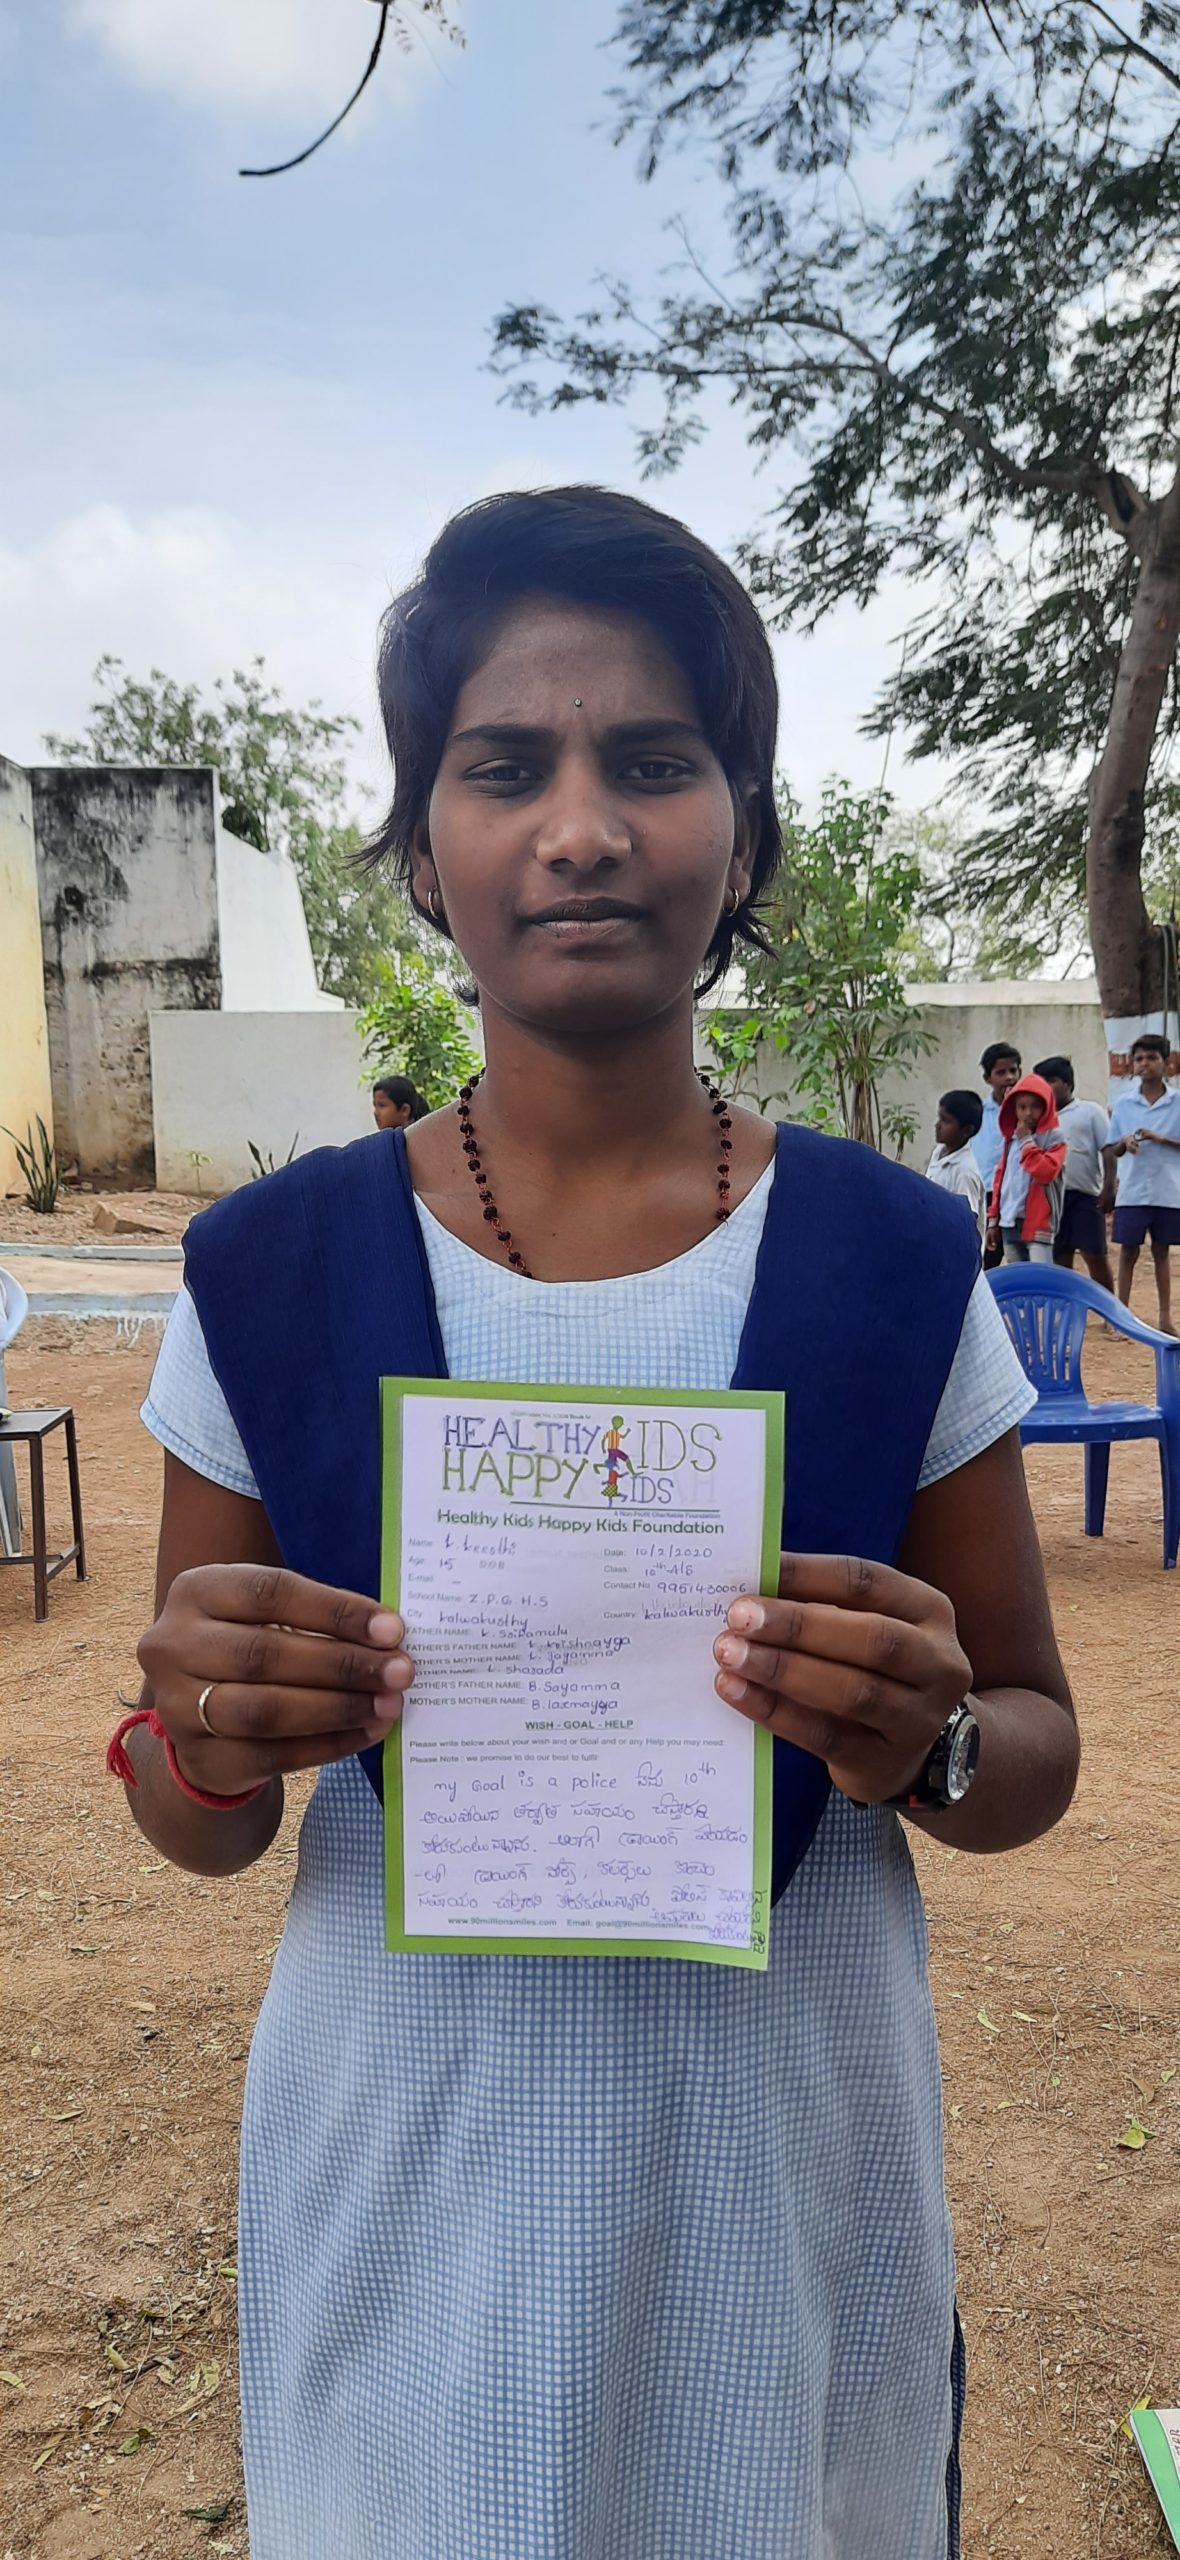 HEALTHY KIDS
HAPPY KIDS
A Non-Profit Charitable Foundation
Healthy Kids Happy Kids Foundation
Name: K. Keerthi Date: 10/2/2020
Age: 15 DOB Class: 10th A/S
E-mail: - Contact No 9951430006
School Name: Z.P.G.H.S
City kalwakurthy Country: kalwakurthy
FATHER NAME: K. Sriramulu
FATHER'S FATHER NAME: K. Krishnayya
FATHER'S MOTHER NAME: K. Jayamma
MOTHER NAME: K. Sharada
MOTHER'S FATHER NAME: B. Sayamma
MOTHER'S MOTHER NAME: B. laxmayya
WISH - GOAL - HELP
Please write below about your wish and or Goal and or any Help you may need:
Please Note: we promise to do our best to fulfil:
my Goal is a police నేను 10th
అయిపోయిన తర్వాత సహాయం చేస్తారని
కోరుకుంటున్నాను. అలాగే డ్రాయింగ్ వేయడం
డ్రాయింగ్ కలర్సులు కొంచెం
సహాయం చేస్తారని కోరుకుంటున్నాను పోలీస్
www.90millionsmiles.com Email: goal@90millionsmiles.com